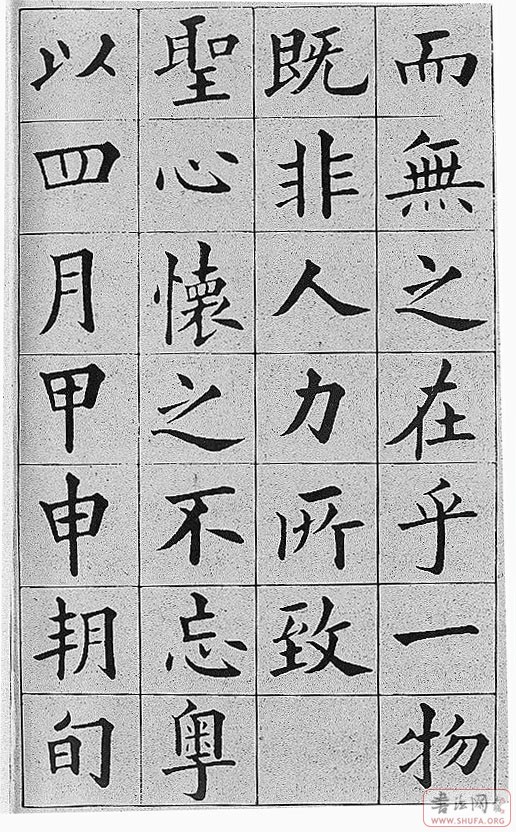 而無之在乎一物
既非人力所致
聖心懷之不忘粵
以四月甲申朔旬
書法网
WWW.SHUFA.ORG